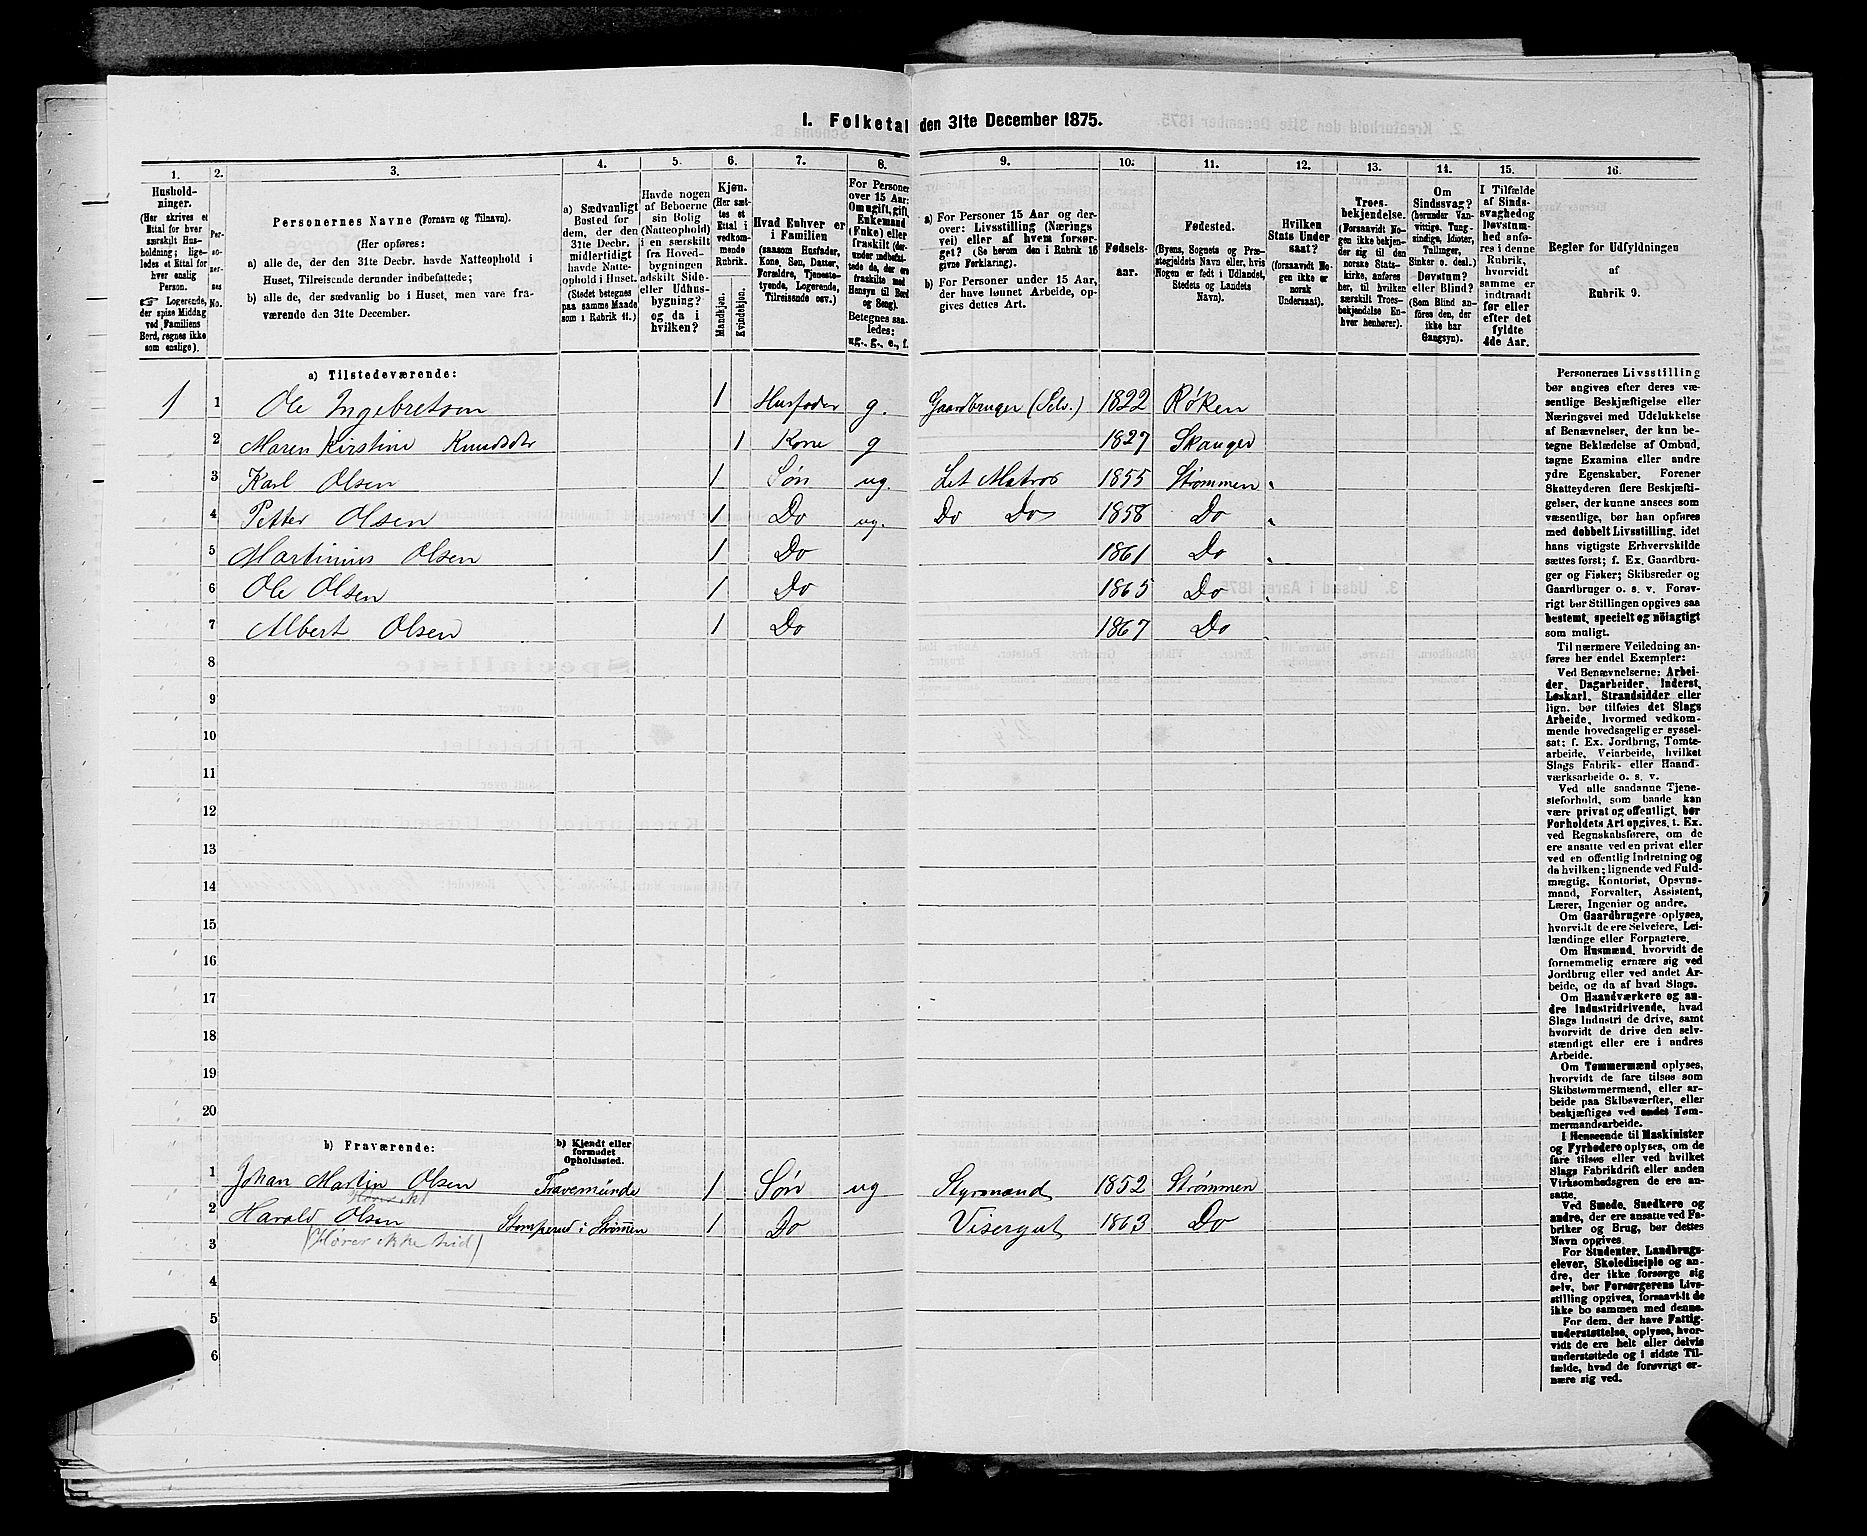 I. Folketal den 31te December 1875.
1. 2. 3. 4. 5. 6. 7. 8. 9. 10. 11. 12. 13. 14. 15. 16.
Hushold-
ninger.
(Her skrives et
Ettal for hver
særskilt Hus-
holdning; lige-
ledes et Ettal for
hver enslig
Person.
☞ Logerende,
der spise Middag
ved Familiens
Bord, regnes ikke
som enslige).
Per-
so-
ner-
nes
No.
Personernes Navne (Fornavn og Tilnavn).
(Her opføres:
a) alle de, der den 31te Decbr. havde Natteophold i
Huset, Tilreisende derunder indbefattede;
b) alle de, der sædvanlig bo i Huset, men vare fra-
værende den 31te December.
a) Sædvanligt
Bosted for
dem, der den
31te Decbr.
midlertidigt
havde Natte-
ophold i Huset.
(Stedet betegnes
paa samme Maade
som i Rubrik 11.)
Havde nogen
af Beboerne
sin Bolig
(Natteophold)
i en særskilt
fra Hoved-
bygningen
adskilt Side-
eller Udhus-
bygning?
og da i
hvilken?
Kjøn.
(Her sæt-
tes et
Ettal i
vedkom-
mende
Rubrik.
Mandkjøn.
Kvindekjøn.
Hvad Enhver er
i Familien
(saasom Husfader,
Kone, Søn, Datter,
Forældre, Tjeneste-
tyende, Logerende,
Tilreisende osv.)
For Personer
over 15 Aar:
Om ugift, gift,
Enkemand
(Enke) eller
fraskilt (der-
under indbefat-
tede de, der ere
fraskilte med
Hensyn til Bord
og Seng).
Betegnes saa-
ledes:
ug., g., e., f.
a) For Personer 15 Aar og der-
over: Livsstilling (Nærings-
vei) eller af hvem forsør-
get? (Se herom den i Rubrik 16
givne Forklaring).
b) For Personer under 15 Aar,
der have lønnet Arbeide, op-
gives dettes Art.
Fødsels-
aar.
Fødested.
(Byens, Sognets og Præ-
stegjeldets Navn eller, hvis
Nogen er født i Udlandet,
Stedets og Landets
Navn).
Hvilken
Stats Under-
saat?
(forsaavidt No-
gen ikke er
norsk
Undersaat).
Troes-
bekjendelse.
(Forsaavidt No-
gen ikke bekjen-
der sig til den
norske Stats-
kirke, anføres
her, til hvilken
særskilt Troes-
bekjendelse En-
hver henhører).
Om
Sindssvag?
(herunder Van-
vittige, Tung-
sindige, Idioter,
Tullinger,
Sinker o. desl.)
Døvstum?
eller Blind?
(Som Blind an-
føres den, der
ikke har
Gangsyn).
I Tilfælde
af Sinds-
svaghed og
Døvstum-
hed anfø-
res i denne
Rubrik,
hvorvidt
samme er
indtraadt
før eller
efter det
fyldte
4de Aar.
Regler for Udfyldningen
af
Rubrik 9.
a) Tilstedeværende:
1 1 Ole Ingebretsen 1 Husfader g. Gaardbruger (Selv.) 1822 Røken
2 Maren Kirstine Knudsdtr 1 Kone g 1827 Skauger
3 Karl Olsen 1 Søn ug. Let Matros 1855 Strømmen
4 Petter Olsen 1 Do ug. Do Do 1858 Do
5 Martinius Olsen 1 Do 1861 Do
6 Ole Olsen 1 Do 1865 Do
7 Albert Olsen 1 Do 1867 Do
8
9
10
11
12
13
14
15
16
17
18
19
20
b) Fraværende:
b) Kjendt eller
formodet
Opholdssted.
1 Johan Martin Olsen Travemünde 1 Søn ug Styrmand 1852 Strømmen
2 Harald Olsen Stomperud i Strømen 1 Do Visergut 1863 Do
(Hører ikke hid)
3
4
5
6
Personernes Livsstilling
bør angives efter deres væ-
sentlige Beskjæftigelse eller
Næringsvei med Udelukkelse
af Benævnelser, der kun be-
tegne Beklædelse af Ombud,
tagne Examina eller andre
ydre Egenskaber. Forener
Skatteyderen flere Beskjæfti-
gelser, der kunne ansees som
væsentlige, bør han opføres
med dobbelt Livsstilling, idet
hans vigtigste Erhvervskilde
sættes først; f. Ex. Gaardbru-
ger og Fisker; Skibsreder og
Gaardbruger o. s. v. Forøv-
rigt bør Stillingen opgives saa
bestemt, specielt og nöiagtigt
som muligt.
Til nærmere Veiledning an-
føres her endel Exempler:
Ved Benævnelserne: Arbei-
der, Dagarbeider, Inderst,
Løskarl, Strandsidder eller
lign. bør tilføies det Slags
Arbeide, hvormed vedkom-
mende hovedsagelig er syssel-
sat; f. Ex. Jordbrug, Tomte-
arbeide, Veiarbeide, hvilket
Slags Fabrik- eller Haand-
værksarbeide o. s. v.
Ved alle saadanne Tjene-
steforhold, som baade kan
være privat og offentligt, bør
Forholdets Art opgives, f. Ex.
ved Regnskabsførere, om de
ere ansatte ved en privat eller
ved en offentlig Indretning og
da hvilken; lignende ved Fuld-
mægtig, Kontorist, Opsyns-
mand, Forvalter, Assistent,
Lærer, Ingeniør og andre.
Om Gaardbrugere oplyses,
hvorvidt de ere Selveiere, Lei-
lændinge eller Forpagtere.
Om Husmænd, hvorvidt de
fornemmelig ernære sig ved
Jordbrug eller ved andet Ar-
beide, og da af hvad Slags.
Om Haandværkere og an-
dre Industridrivende, hvad
Slags Industri de drive, samt
hvorvidt de drive den selv-
stændigt eller ere i andres
Arbeide.
Om Tømmermænd oplyses,
hvorvidt de fare tilsøs som
Skibstømmermænd, eller ar-
beide paa Skibsværfter, eller
beskjæftiges ved andet Tøm-
mermandsarbeide.
I Henseende til Maskinister
og Fyrbødere oplyses, om de
fare tilsøs eller ved hvilket
Slags Fabrikdrift eller anden
Virksomhedsgren de ere an-
satte.
Ved Smede, Snedkere og
andre, der ere ansatte ved Fa-
briker og Brug, bør dettes
Navn opgives.
For Studenter, Landbrugs-
elever, Skoledisciple og an-
dre, der ikke forsørge sig
selv, bør Forsørgerens Livs-
stilling opgives, forsaavidt de
ikke bo sammen med denne.
For dem, der have Fattig-
understøttelse, oplyses, hvor-
vidt de ere helt eller delvis
understøttede og i sidste Til-
fælde, hvad de forøvrigt er-
nære sig ved.